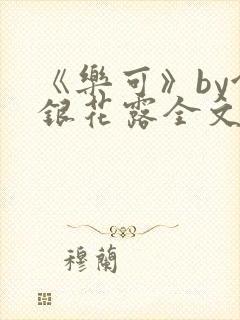 《樂可》by
銀花露全文
穆蘭